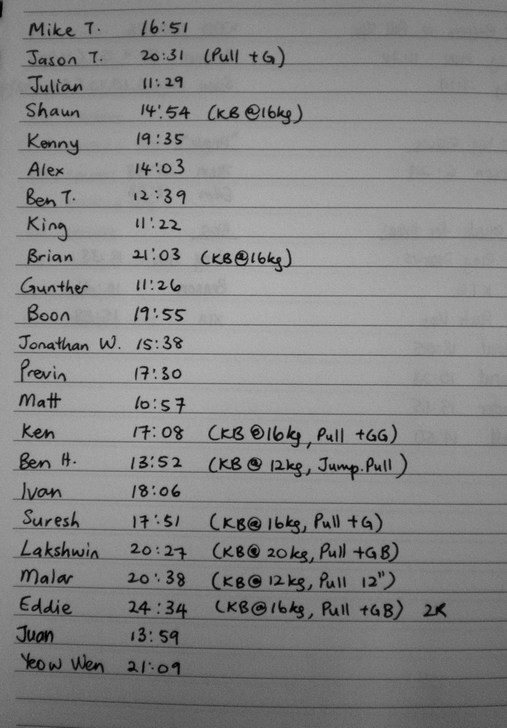 Mike T. 16:51
Jason T. 20:31 (Pull +G)
Julian 11:29
Shaun 14:54 (KB @16kg)
Kenny 19:35
Alex 14:03
Ben T. 12:39
King 11:22
Brian 21:03 (KB@16kg)
Gunther 11:26
Boon 19:55
Jonathan W. 15:38
Previn 17:30
Matt 10:57
Ken 17:08 (KB @16kg, Pull +GG)
Ben H. 13:52 (KB @ 12kg, Jump.Pull)
Ivan 18:06
Suresh 17:51 (KB@ 16kg, Pull +G)
Lakshwin 20:27 (KB@ 20kg, Pull +GB)
Malar 20:38 (KB@ 12kg, Pull 12")
Eddie 24:34 (KB@16kg, Pull +GB)
Juan 13:59
Yeow Wen 21:09